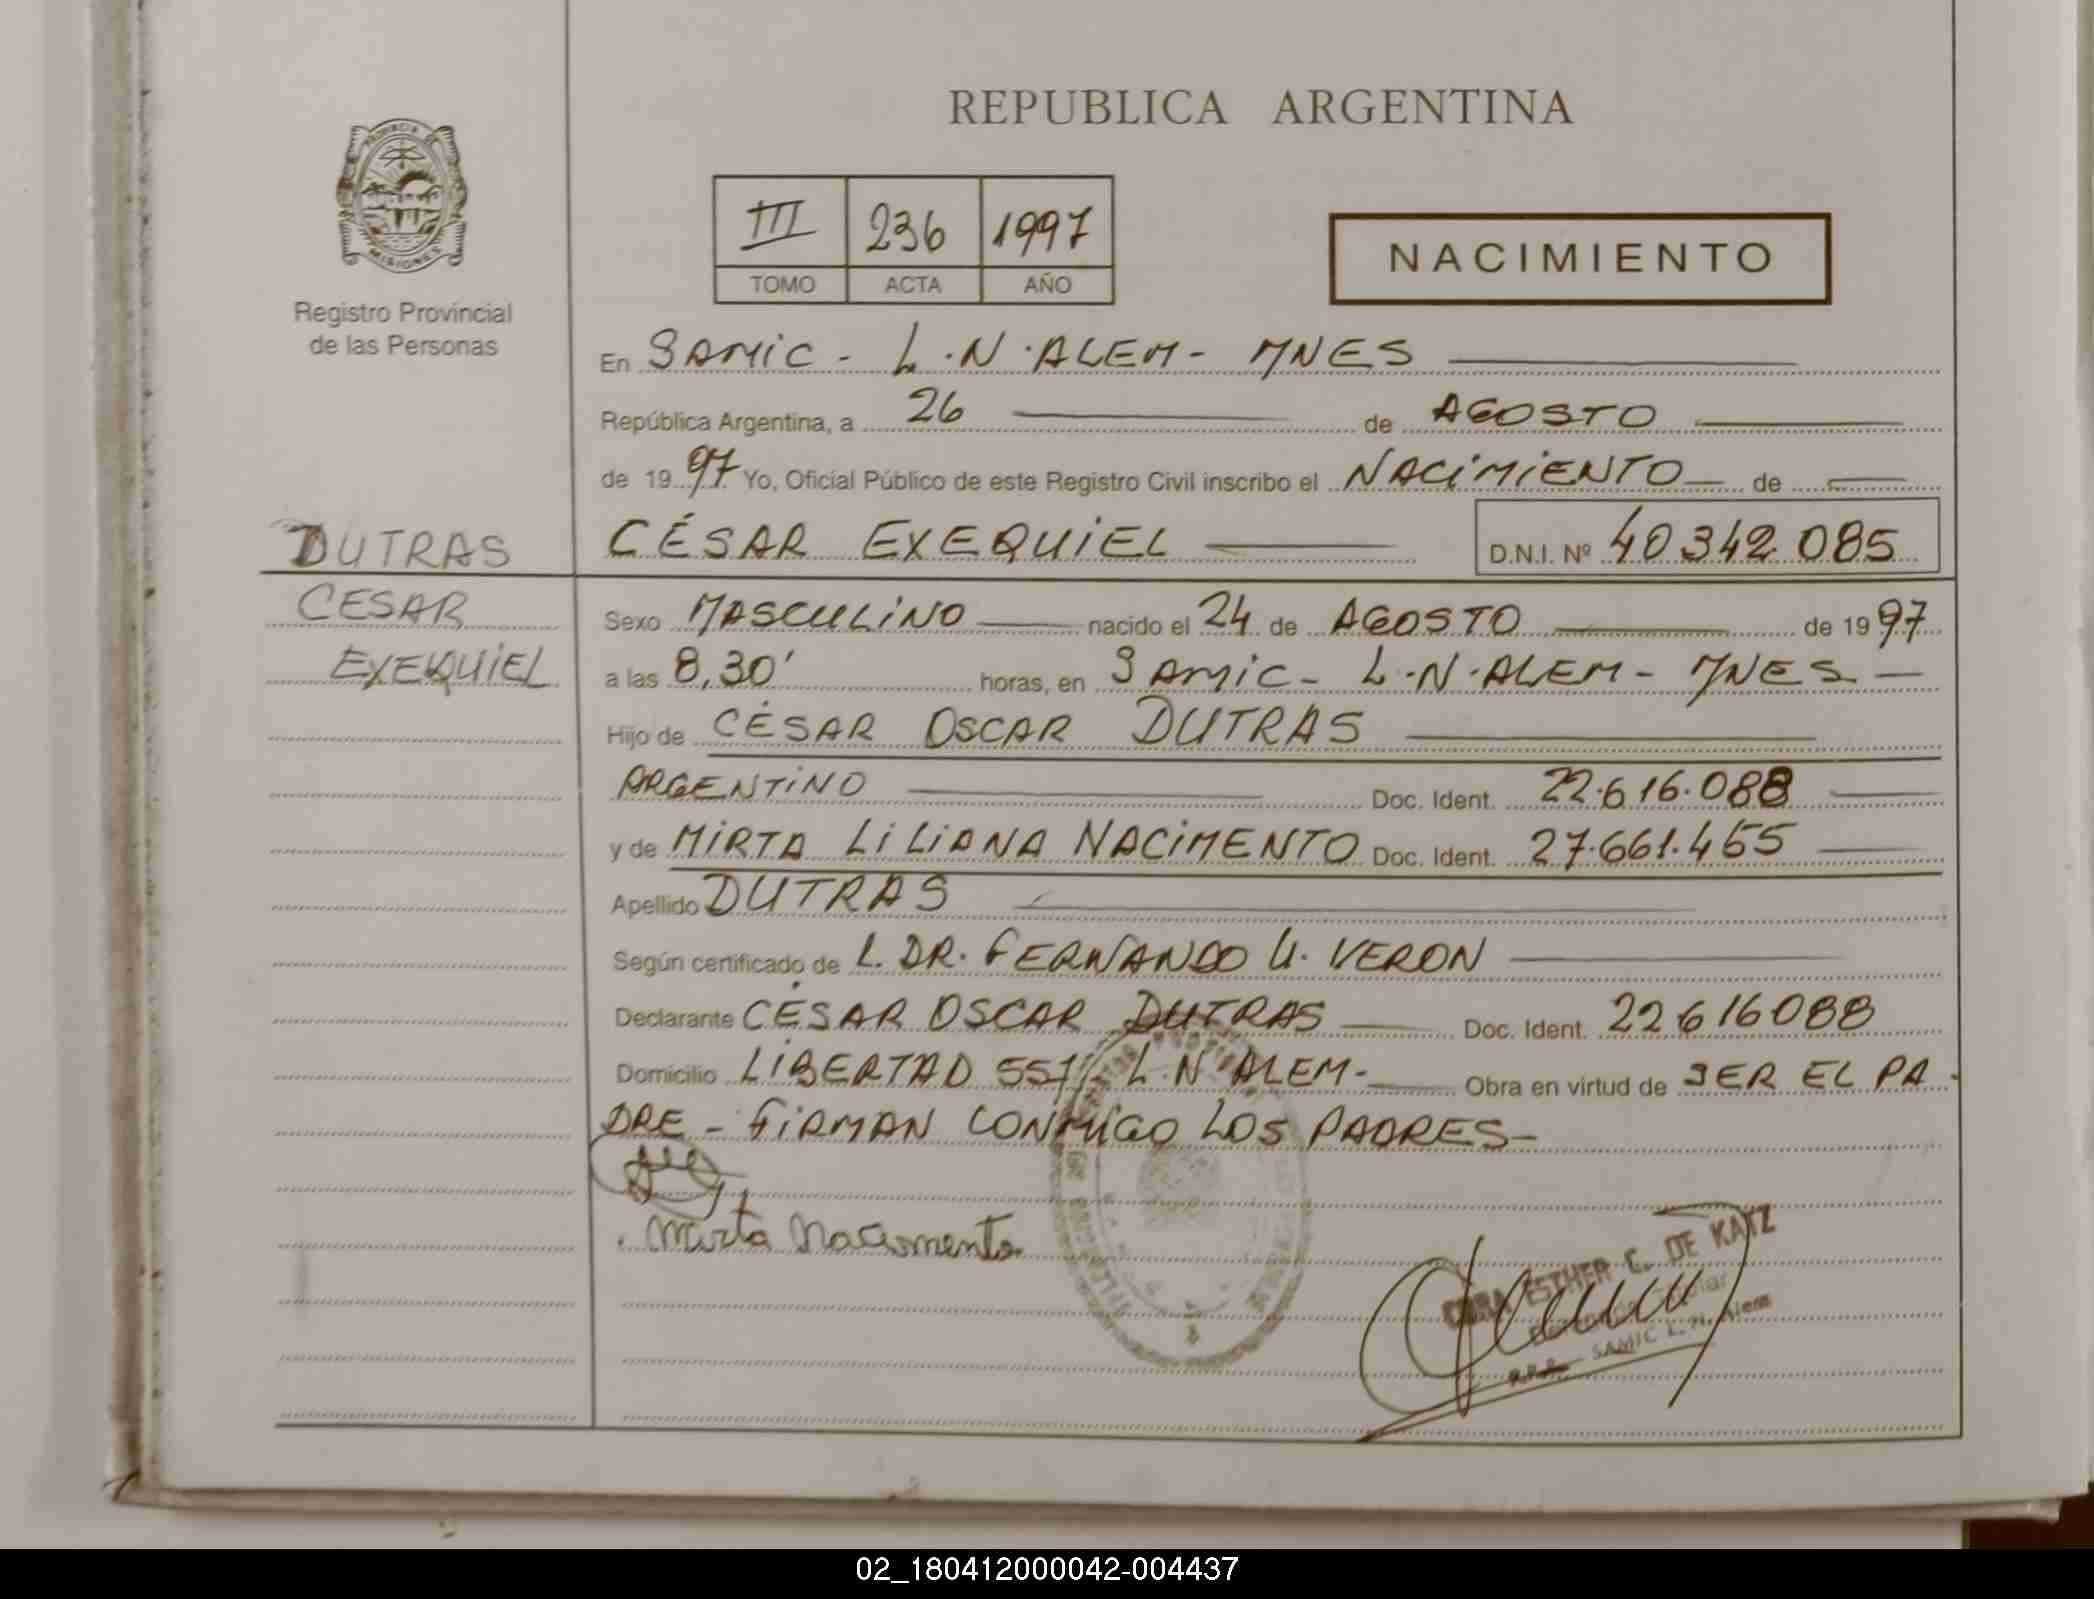 REPUBLICA ARGENTINA
PROVINCIA DE
MISIONES
Registro Provincial
de las Personas
III 236 1997
TOMO ACTA AÑO
NACIMIENTO
En SAMIC - L.N.ALEM - MNES
República Argentina, a 26 de AGOSTO
de 1997 Yo, Oficial Público de este Registro Civil inscribo el NACIMIENTO de
DUTRAS
CESAR
EXEQUIEL
CÉSAR EXEQUIEL D.N.I. Nº 40.342.085
Sexo MASCULINO nacido el 24 de AGOSTO de 1997
a las 8,30' horas, en SAMIC - L.N.ALEM - MNES
Hijo de CÉSAR OSCAR DUTRAS
ARGENTINO Doc. Ident. 22.616.088
y de MIRTA LILIANA NACIMENTO Doc. Ident. 27.661.455
Apellido DUTRAS
Según certificado de L. DR. FERNANDO U. VERON
Declarante CÉSAR OSCAR DUTRAS Doc. Ident. 22616088
Domicilio LIBERTAD 551 L.N ALEM- Obra en virtud de SER EL PA-
DRE - FIRMAN CONMIGO LOS PADRES-
Mirta Nacimento
ESTHER C. DE KATZ
SAMIC L. N. Alem
02_180412000042-004437